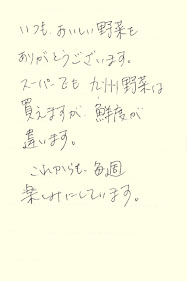 いつも、おいしい野菜を
ありがとうございます。
スーパーでも九州野菜は
買えますが、鮮度が
違います。
これからも、毎週
楽しみにしています。